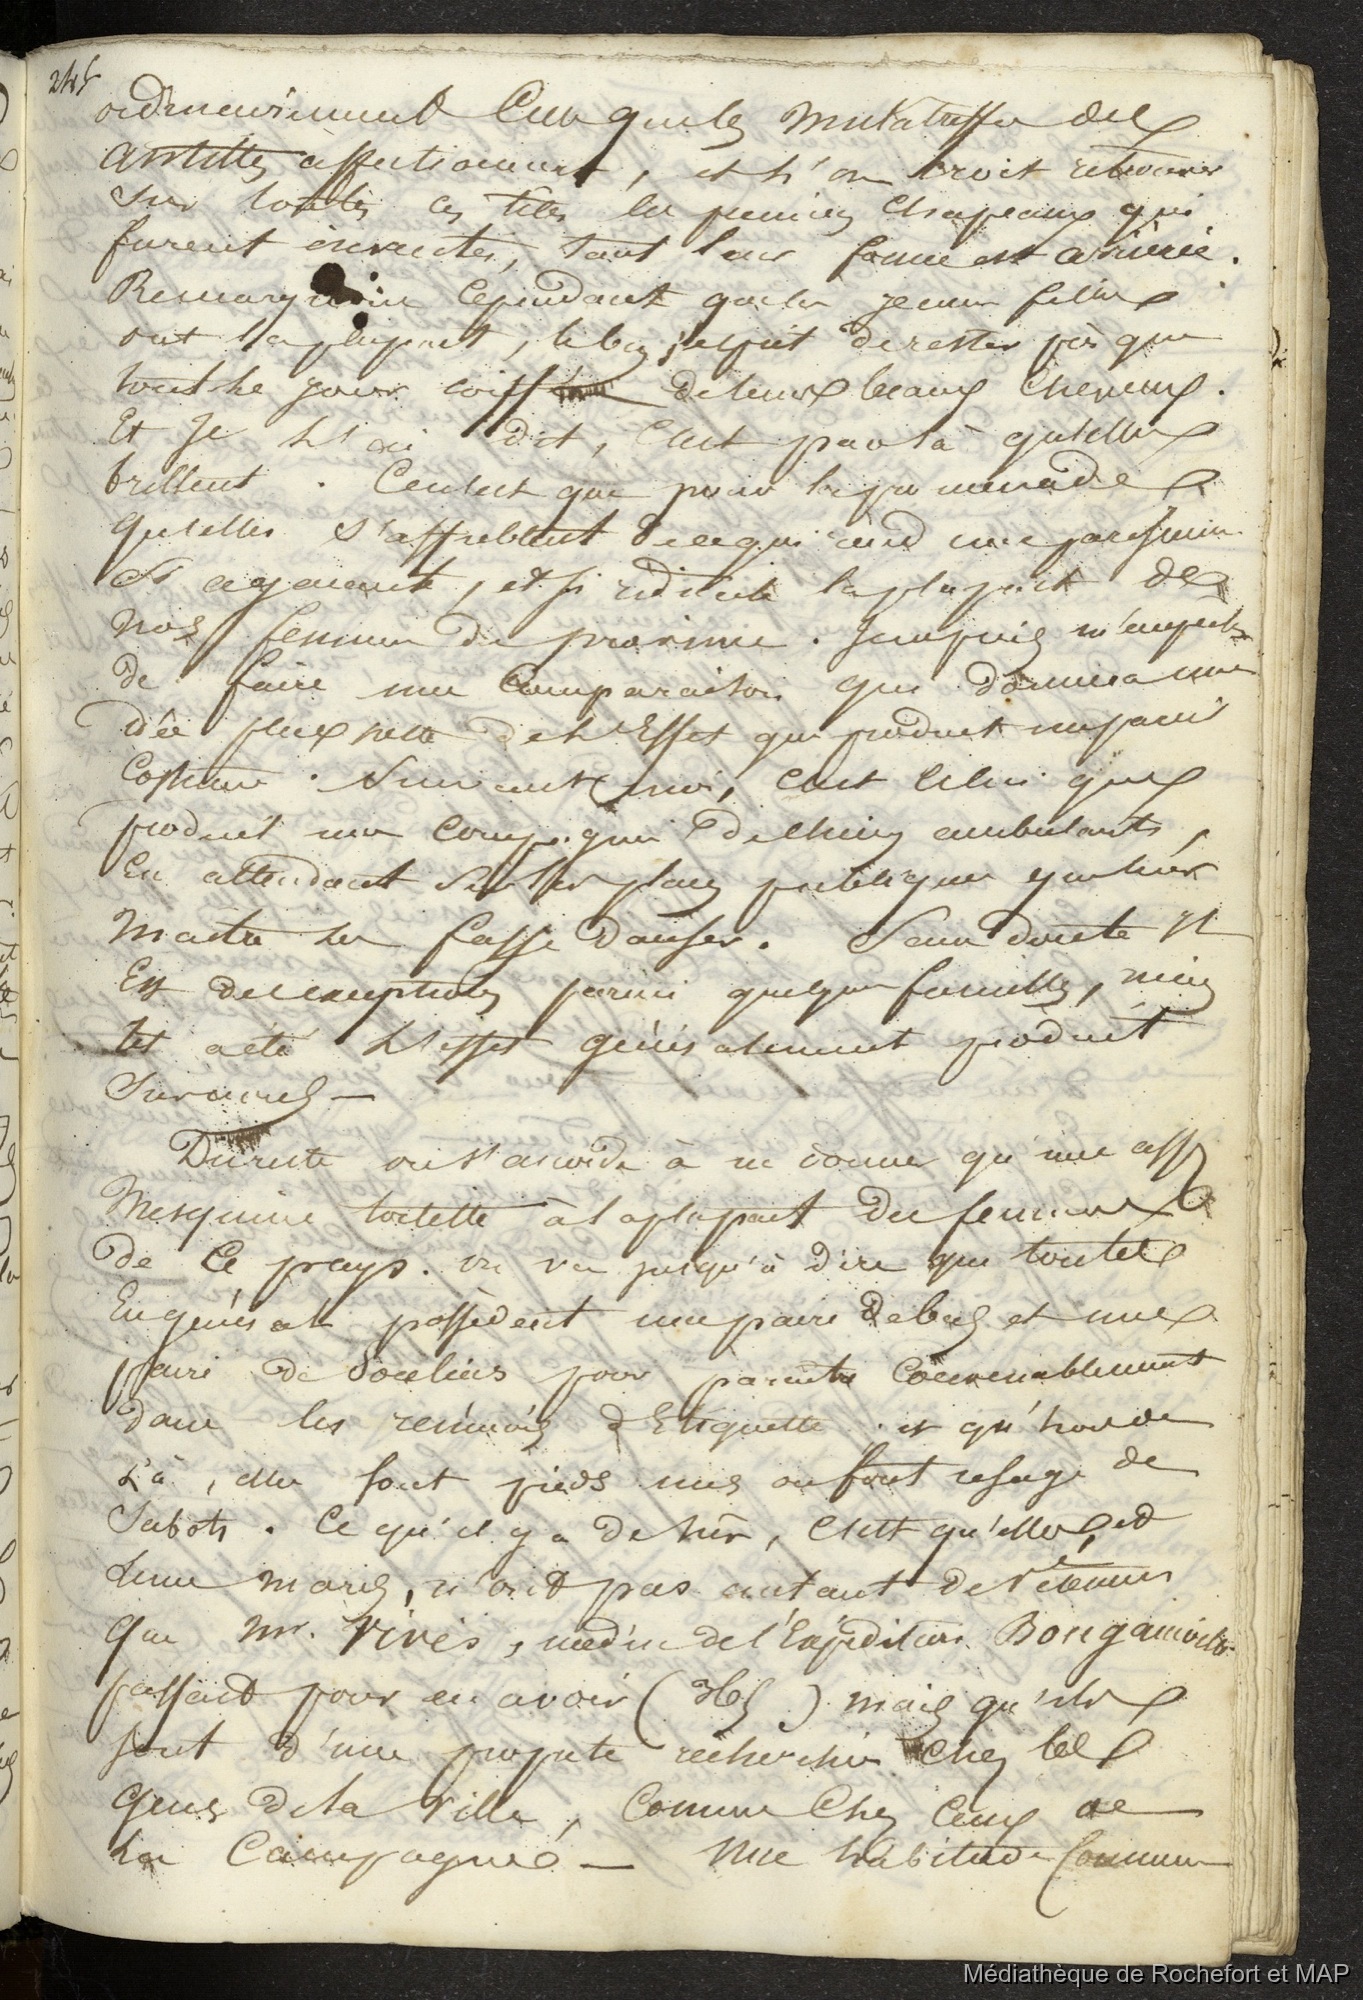 245
ordinairement Ceux que les Mulatresses des
Antilles affectionnent, et l'on croit retrouver
sur toutes ces têtes les premiers chapeaux qui
furent inventés, tant leur forme est arriérée.
Remarquons Cependant que les jeunes filles
ont la plupart, le bon esprit de rester presque
tout le jour coiffées de leurs beaux cheveux.
Et Je l'ai dit, C'est par là qu'elles
brillent. Ce n'est que pour la promenade
qu'elles s'affublent de ce qui rend une parisienne
si agaçante, et si ridicule la plupart des
nos femmes de province. Je ne puis m'empêcher
de faire une Comparaison qui donnera une
idée plus nette de l'Effet que produit un pareil
Costume. Suivant moi, C'est celui que
produit une Compagnie de chiens ambulants,
En attendant sur les places publiques que leur
Maître les fasse danser. Sans doute Il
Est des exceptions parmi quelques familles, mais
tel a été l'effet généralement produit
sur nous —
Du reste on s'accorde à ne donner qu'une assez
Mesquine toilette à la plupart des femmes
de Ce pays. on va jusqu'à dire que toutes
En général possèdent une paire de bas et une
paire de souliers pour paraître Convenablement
dans les réunions d'Etiquette. et qu'hors de
Là, elles sont pieds nus ou font usage de
Sabots. Ce qu'il y a de sûr, C'est qu'elles, et
leurs maris, n'ont pas autant de vêtemens
que Mr. Vivès, médecin de l'Expédition Bougainville
passant pour en avoir (36) mais qu'ils
sont d'une propreté recherchée chez les
Gens de la Ville, Comme Chez Ceux de
La Campagne — Une habitude Commune
Médiathèque de Rochefort et MAP